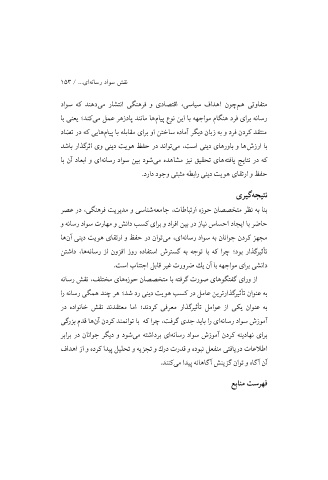 نقش سواد رسانه‌ای... / ۱۵۳
متفاوتی همچون اهداف سیاسی، اقتصادی و فرهنگی انتشار می‌دهند که سواد
رسانه برای فرد هنگام مواجهه با این نوع پیام‌ها مانند پادزهر عمل می‌کند؛ یعنی با
منتقد کردن فرد و به زبان دیگر آماده ساختن او برای مقابله با پیام‌هایی که در تضاد
با ارزش‌ها و باورهای دینی است، می‌تواند در حفظ هویت دینی وی اثرگذار باشد
که در نتایج یافته‌های تحقیق نیز مشاهده می‌شود بین سواد رسانه‌ای و ابعاد آن با
حفظ و ارتقای هویت دینی رابطه مثبتی وجود دارد.
نتیجه‌گیری
بنا به نظر متخصصان حوزه ارتباطات، جامعه‌شناسی و مدیریت فرهنگی، در عصر
حاضر با ایجاد احساس نیاز در بین افراد و برای کسب دانش و مهارت سواد رسانه و
مجهز کردن جوانان به سواد رسانه‌ای، می‌توان در حفظ و ارتقای هویت دینی آن‌ها
تأثیرگذار بود؛ چرا که با توجه به گسترش استفاده روز افزون از رسانه‌ها، داشتن
دانشی برای مواجهه با آن یك ضرورت غیر قابل اجتناب است.
از ورای گفتگوهای صورت گرفته با متخصصان حوزه‌های مختلف، نقش رسانه
به عنوان تأثیرگذارترین عامل در کسب هویت دینی رد شد؛ هر چند همگی رسانه را
به عنوان یکی از عوامل تأثیرگذار معرفی کردند؛ اما معتقدند نقش خانواده در
آموزش سواد رسانه‌ای را باید جدی گرفت، چرا که با توانمند کردن آن‌ها قدم بزرگی
برای نهادینه کردن آموزش سواد رسانه‌ای برداشته می‌شود و دیگر جوانان در برابر
اطلاعات دریافتی منفعل نبوده و قدرت درك و تجزیه و تحلیل پیدا کرده و از اهداف
آن آگاه و توان گزینش آگاهانه پیدا می‌کنند.
فهرست منابع